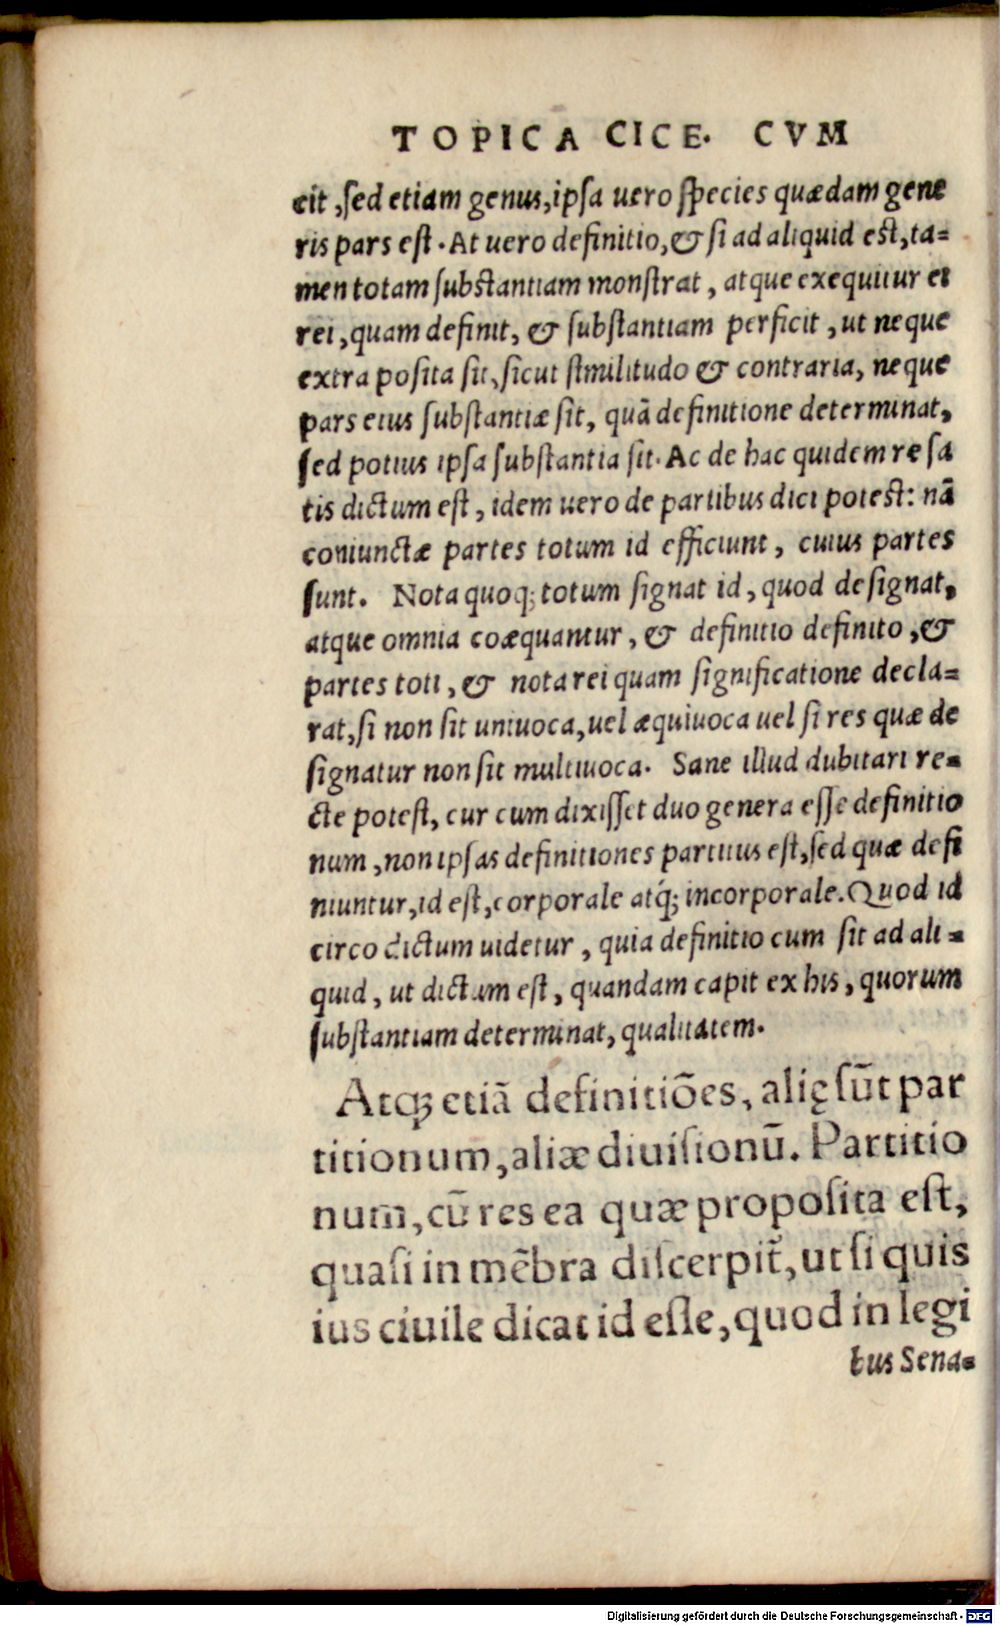 TOPICA CICE. CVM
cit, sed etiam genus, ipsa uero species quædam gene
ris pars est. At uero definitio, & si ad aliquid est, ta=
men totam substantiam monstrat, atque exequitur ei
rei, quam definit, & substantiam perficit, ut neque
extra posita sit, sicut similitudo & contraria, neque
pars eius substantiæ sit, quã definitione determinat,
sed potius ipsa substantia sit. Ac de hac quidem re sa
tis dictum est, idem uero de partibus dici potest: nã
coniunctæ partes totum id efficiunt, cuius partes
sunt. Nota quoq; totum signat id, quod designat,
atque omnia coæquantur, & definitio definito, &
partes toti, & nota rei quam significatione decla=
rat, si non sit uniuoca, uel æquiuoca uel si res quæ de
signatur non sit multiuoca. Sane illud dubitari re=
cte potest, cur cum dixisset duo genera esse definitio
num, non ipsas definitiones partitus est, sed quæ defi
niuntur, id est, corporale atq́; incorporale. Quod id
circo dictum uidetur, quia definitio cum sit ad ali=
quid, ut dictum est, quandam capit ex his, quorum
substantiam determinat, qualitatem.
Atqꝫ etiã definitiões, alię sũt par
titionum, aliæ diuisionũ. Partitio
num, cũ res ea quæ proposita est,
quasi in mẽbra discerpit̃, ut si quis
ius ciuile dicat id esse, quod in legi
bus Sena=
Digitalisierung gefördert durch die Deutsche Forschungsgemeinschaft - DFG